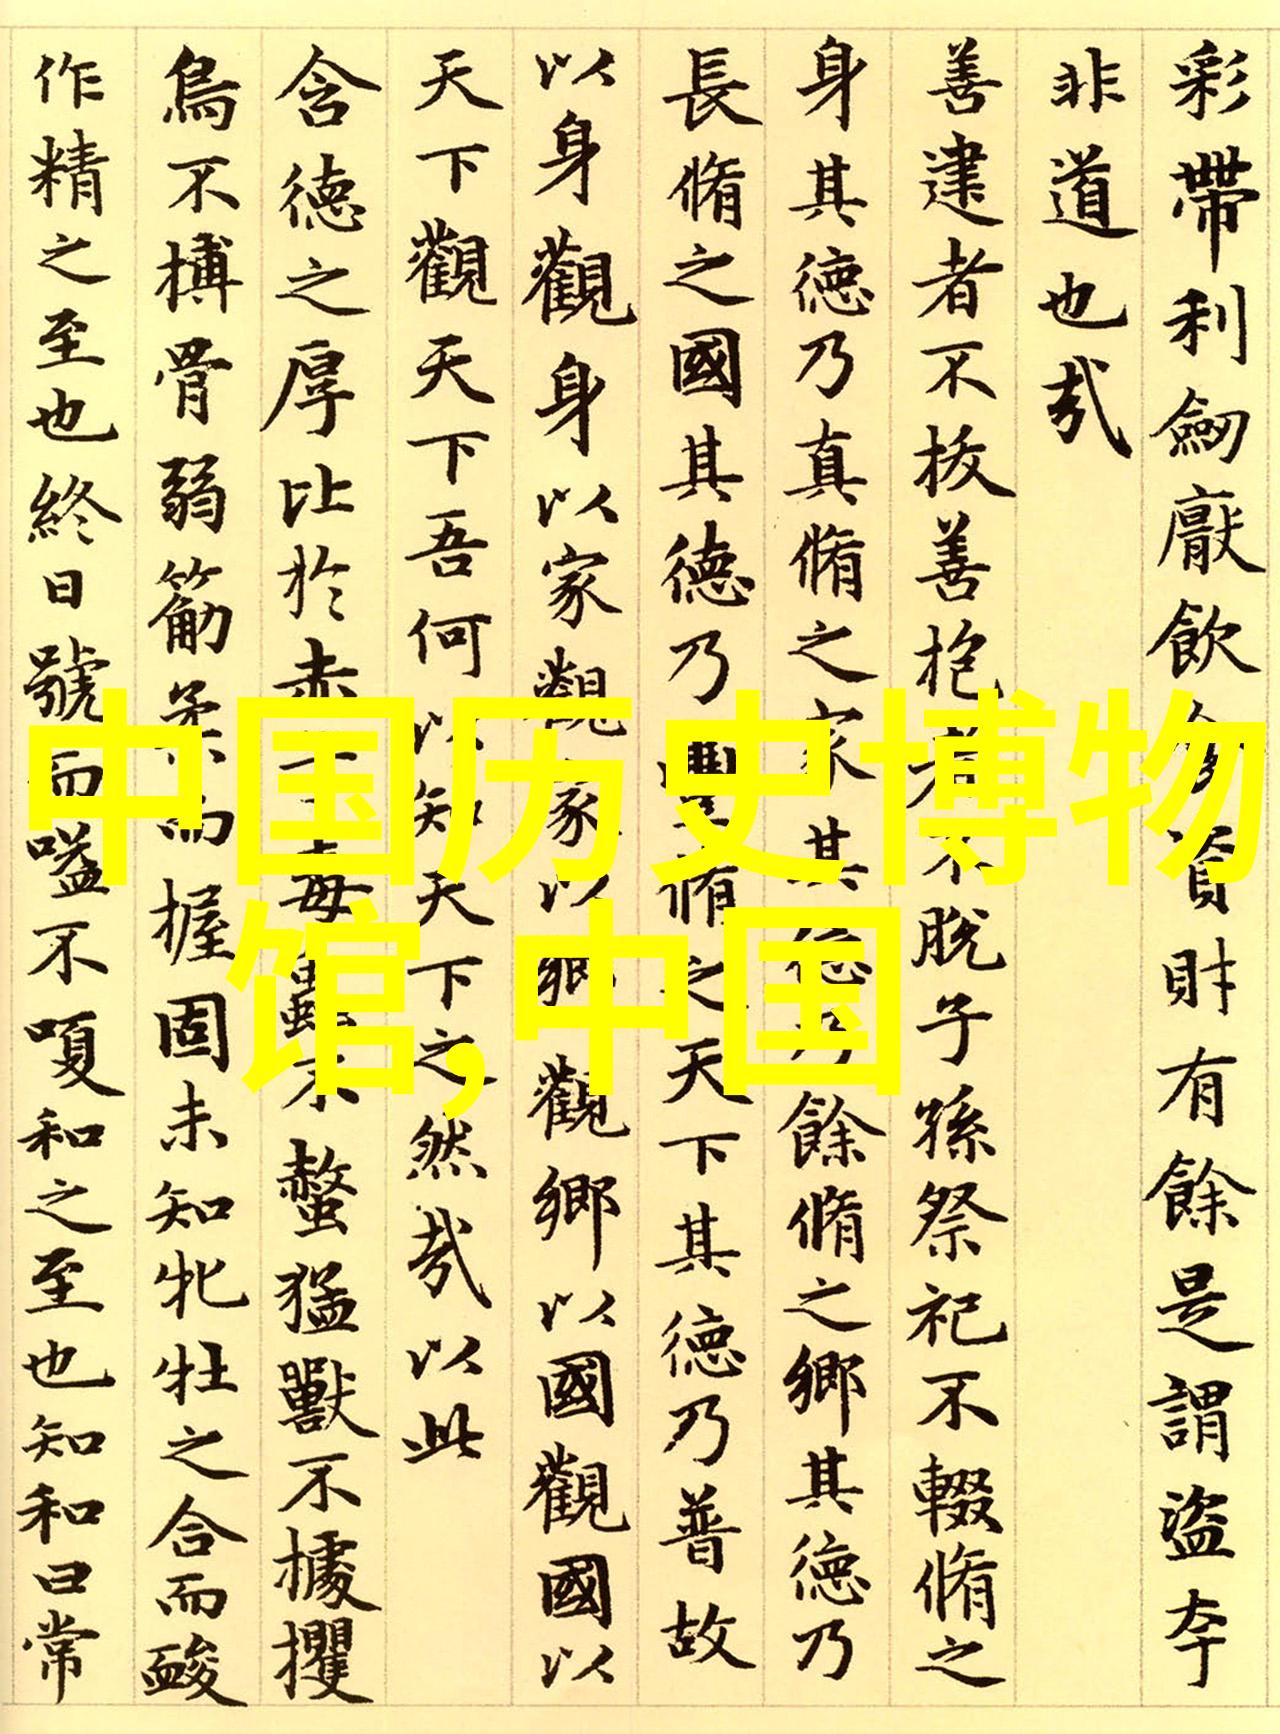 彩帶利劒厭飲食資財有餘是謂盜夸
非道也㢤
善建者不拔善抱者不脫子孫祭祀不輟脩之
身其德乃真脩之家其德乃餘脩之鄉其德乃
長脩之國其德乃豐脩之天下其德乃普故
以身觀身以家觀家以鄉觀鄉以國觀國以
天下觀天下吾何以知天下之然㢤以此
含德之厚比於赤子毒蟲不螫猛獸不據攫
鳥不搏骨弱筋柔而握固未知牝牡之合而䘒
作精之至也終日號而嗌不嗄和之至也知和曰常
中国历史博物
馆,中国